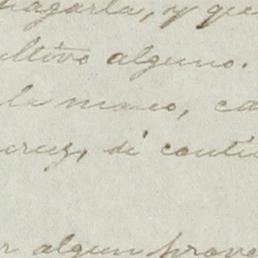 hagarla, y que
ultivo alguno.
la maco, ca
cruz, si conti
r algun prove